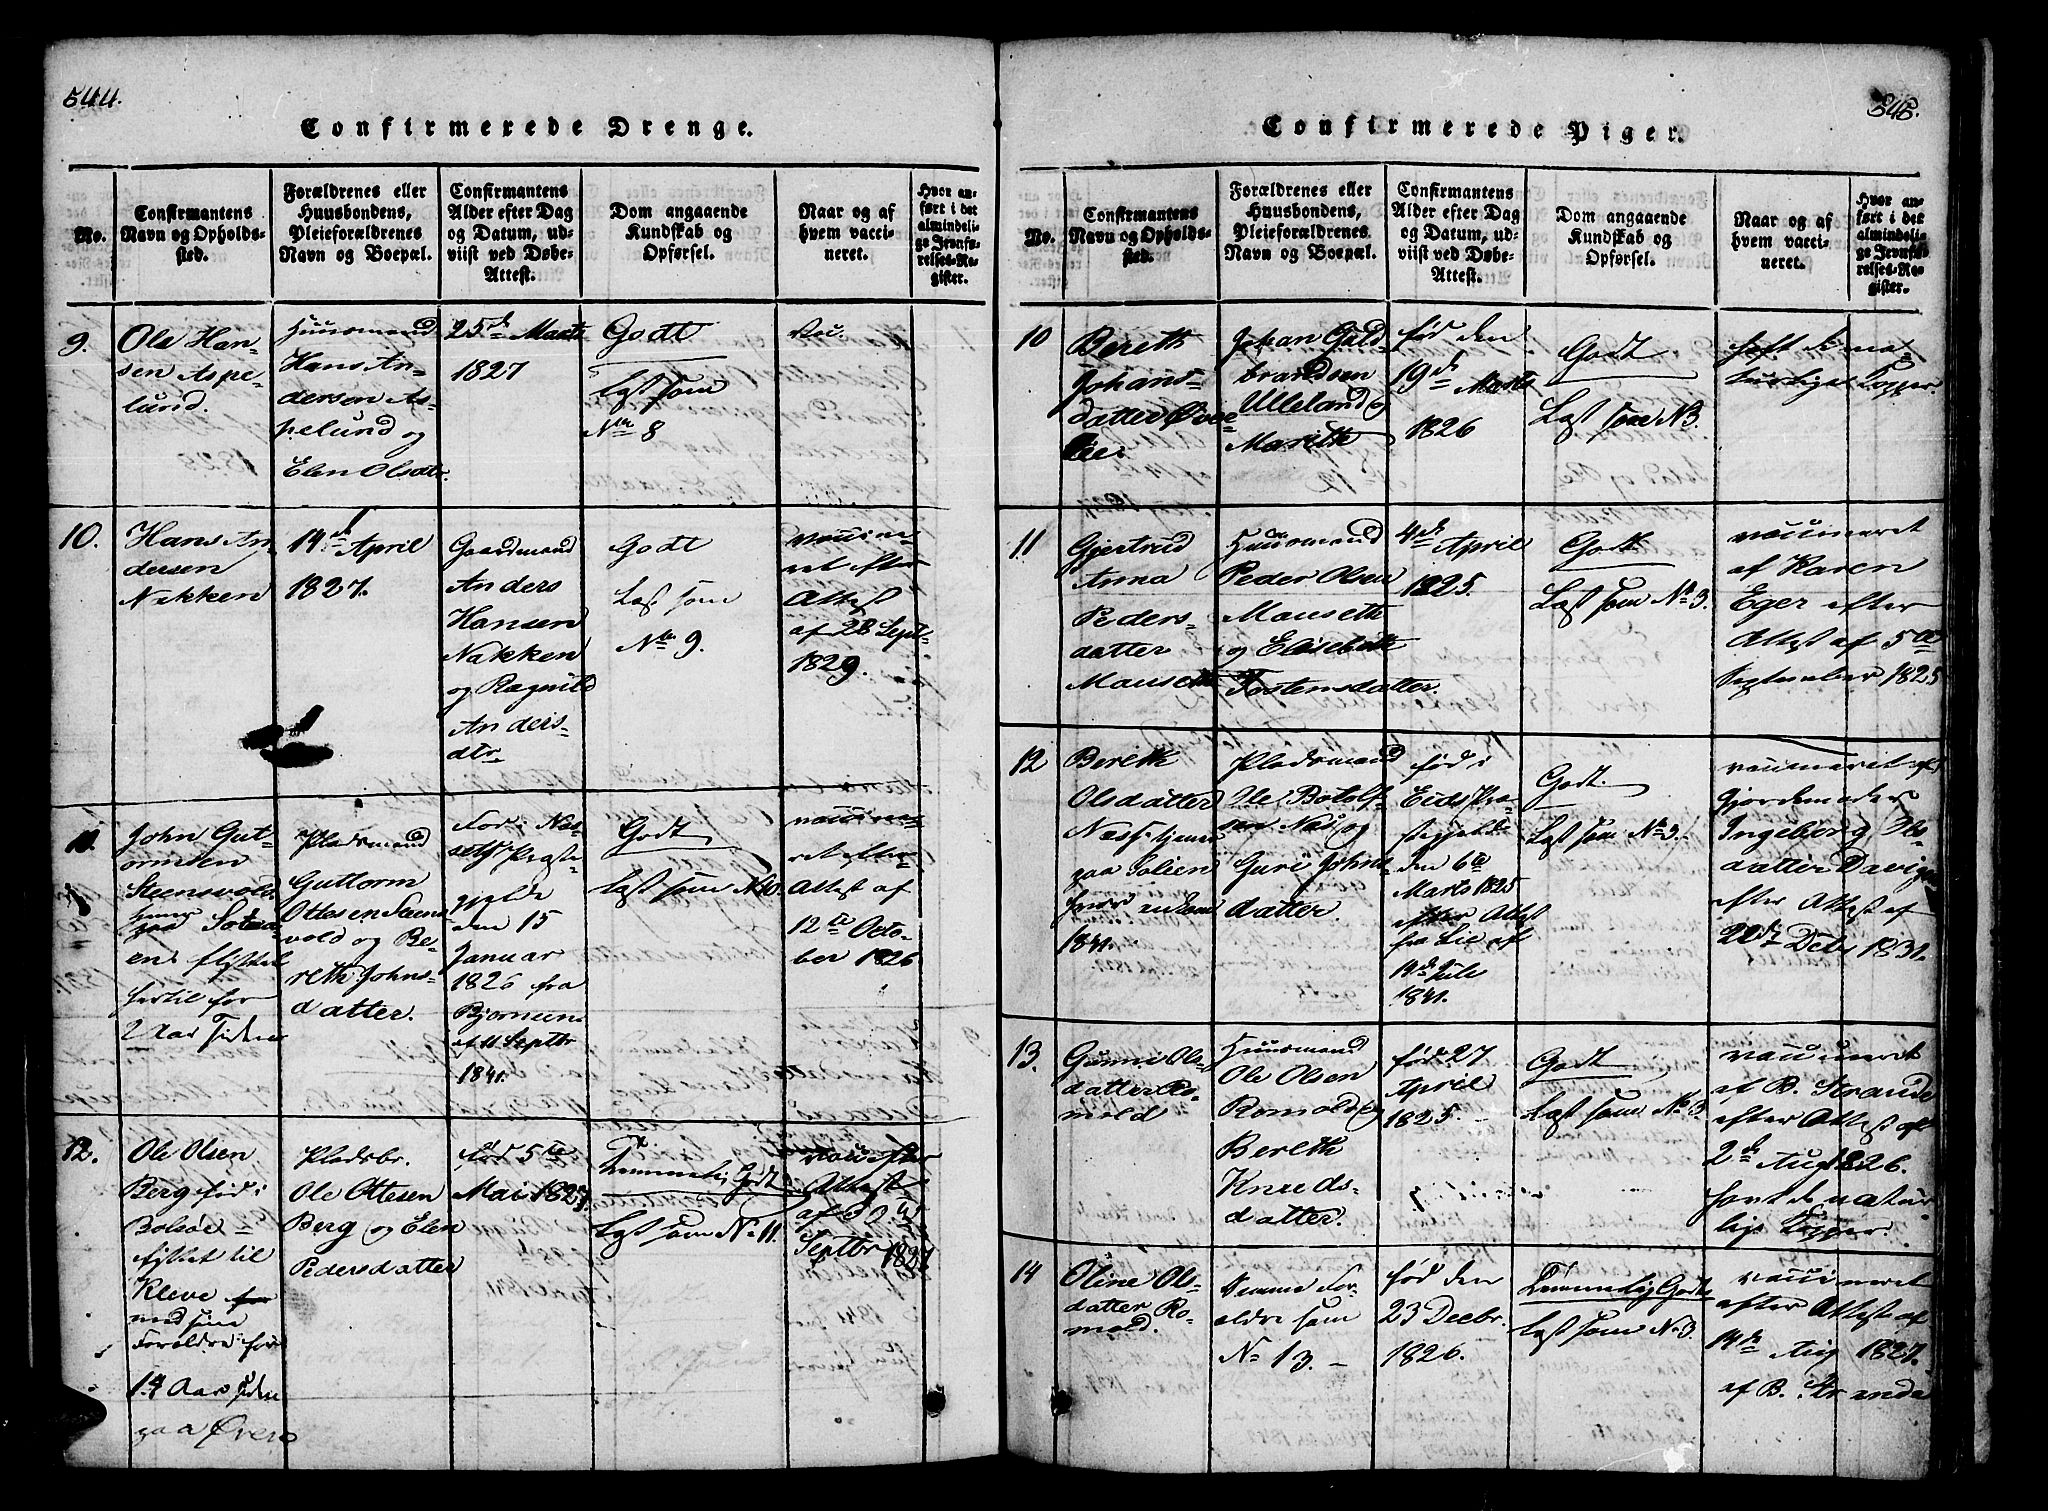 544.
Confirmerede Drenge.
No.
Confirmantens
Navn og Opholds-
sted.
Forældrenes eller
Huusbondens,
Pleieforældrenes
Navn og Boepæl.
Confirmantens
Alder efter Dag
og Datum, ud-
viist ved Døbe-
Attest.
Dom angaaende
Kundskab og
Opførsel.
Naar og af
hvem vacci-
neret.
Hvor an-
ført i det
almindeli-
ge Jevnfø-
relses-Re-
gister.
9.
Ole Han-
sen Aspe-
lund.
Huusmand
Hans An-
dersen As-
pelund og
Elen Olsdtr.
25de Marts
1827
Godt
Læst som
No 8
Vac.
10.
Hans An-
dersen
Nakken
14de April
1827.
Gaardmand
Anders
Hansen
Nakken
og Ragnild
Anders-
dtr.
Godt
Læst som
No 9.
vaccine-
ret efter
Attest
af 28 Septr
1829.
11.
John Gut-
ormsen
Steensvold
paa
flyttet
hertil for
2 Aar siden
Pladsmand
Guttorm
Ottesen Steens-
vold og Be-
reth Johns-
datter.
Før i Nes-
set Præste-
gjeld
den 15
Januar
1826 fra
af 11 Septbr
1841.
Godt
Læst som No 10.
vaccine-
ret efter
Attest af
12te Octo-
ber 1826
12.
Ole Olsen
Berg født i
Bolsøe
flyttet til
Kleve for
med sine
Foreldre for
14 Aar siden
paa Øveraa
Pladsbr.
Ole Ottesen
Berg og Elen
Pedersdatter
født 5te
Mai 1827
Temmelig Godt
Læst som No 11.
vac. efter
Attest
af
Septbr 1827
545.
Confirmerede Piger.
No.
Confirmantens
Navn og Opholds-
sted.
Forældrenes eller
Huusbondens,
Pleieforældrenes
Navn og Boepæl.
Confirmantens
Alder efter Dag
og Datum, ud-
viist ved Døbe-
Attest.
Dom angaaende
Kundskab og
Opførsel.
Naar og af
hvem vacci-
neret.
Hvor an-
ført i det
almindeli-
ge Jevnfø-
relses-Re-
gister.
10
Bereth
Johans-
datter
Johan Guld-
brandsen
Ulleland og
Marethe
født den
19de Marts
1826
Godt
Læst som No 3.
haft de na-
turlige Kopper.
11
Gjertrud
Anna
Peders-
datter
Mauseth
Huusmand
Peder Olsen
Mauseth
og Elisebeth
Tostensdatter.
4de April
1825.
Godt
Læst som No 3.
vaccineret
af Karen
Eger efter
Attest af 5te
September 1825
12
Bereth
Olsdatter
Næss tjener
paa Solien
1841.
Pladsmand
Ole Botolf-
sen Næs og
Guri Johns-
datter.
født i
Eids Præ-
stegjeld
den 6te
Marts 1825
efter Attest
fra Lie af
14de Jule
1841.
Godt.
Læst som No 3.
vaccineret af
Gjordemoder
Ingeborg Ols-
datter
efter Attest af
20de Debr 1831.
13.
Gunni Ols-
datter Ro-
mold
Huusmand
Ole Olsen
Romold og
Bereth
Knuds-
datter.
født 27
April
1825.
Godt
Læst som No 3.
vaccineret
af B. Strande
efter Attest af
2de Aug 1826.
havt de natur-
lige Kopper.
14
Oline Ols-
datter Ro-
mold.
Samme For-
ældre som
No 13.
født den
23 Decbr.
1826.
Temmelig Godt
Læst som No 3.
vaccineret
efter Attest af
14de Aug 1827.
af B. Strande